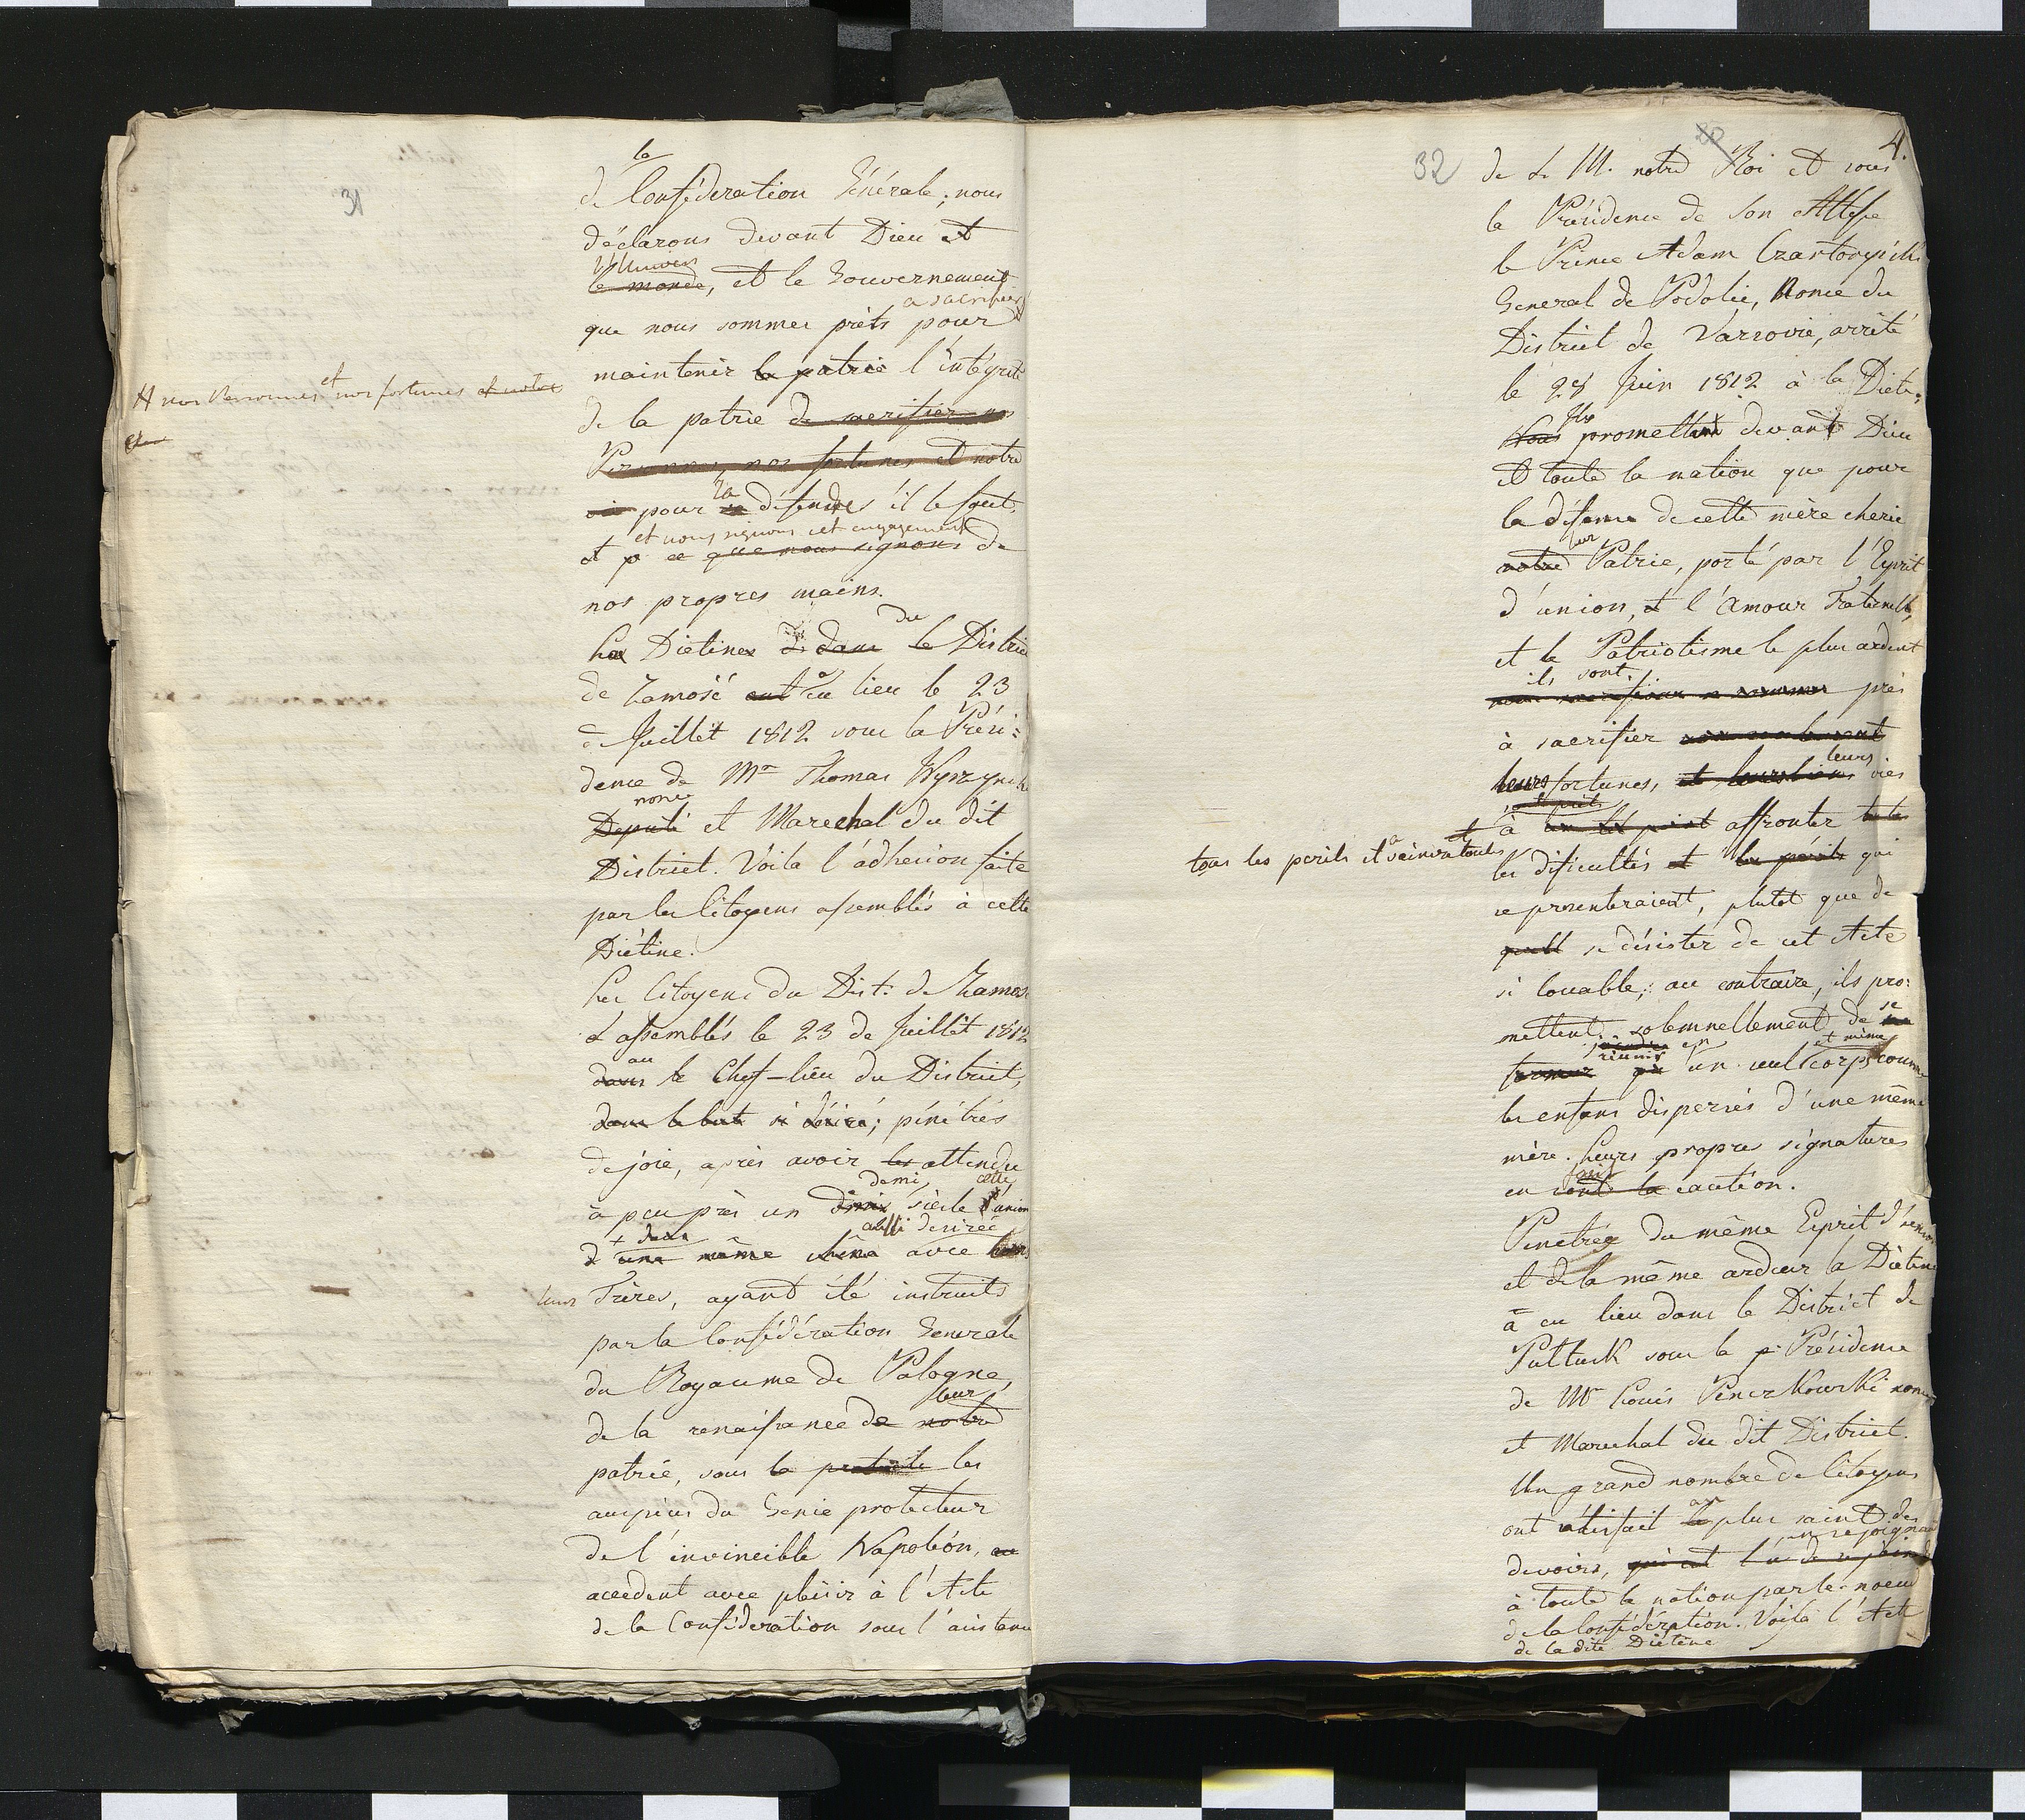 31
la
de Conféderation Générale; nous
déclarons devant Dieu et
l'Univers
le monde, et le Gouvernement
a sacrifier
que nous sommes prêts pour
maintenir la patrie l'intégrité
H nos Personnes et nos fortunes et notre
de la patrie de sacrifier nos
Personnes, nos fortunes et notre
vie pour la défendre s'il le faut.
et nous signons cet engagement
et p ce que nous signons de
nos propres mains.
du
Les Diétines dans le District
de Zamość eut a eu lieu le 23
Juillet 1812 sous la Prési:
dence de Mr Thomas Wyszyński
nonce
Deputé et Marechal du dit
District. Voila l'adhesion faite
par les Citoyens assemblés à cette
Diétine.
Les Citoyens du Dist: de Zamość
assemblés le 23 de Juillet 1812
au
dans le Chef-lieu du District,
dans le but si désiré; pénétrés
de joie, après avoir les attendu
demi cette
à peu près un demi siècle d'union
aussi desirée
d'une même avec
leurs Frères, ayant été instruits
par la Conféderation Generale
du Royaume de Pologne,
leur
de la renaissance de notre
patrie, sous la les
auspices du Genie protecteur
de l'invincible Napoléon,
accedent avec plaisir à l'Acte
de la Conféderation sous l'auis tenu
32
20
4.
de S. M. notre Roi et sous
la Présidence de Son Altesse
le Prince Adam Czartoryiski
General de Podolie, Nonce du
District de Varsovie, arrêté
le 28 Juin 1812 à la Diète.
Ils
Nous promettent devant Dieu
et toute la nation que pour
la défense de cette mère cherie
leur
notre Patrie, porté par l'Esprit
d'union, et l'amour Fraternelle,
et le Patriotisme le plus ardent
ils sont
près
à sacrifier
leurs
leurs fortunes, et leurs biens vies
à affronter
tous les perils et à veincre toutes
les dificultés et les périls qui
se presenteraient, plutôt que de
se désister de cet Acte
si louable; au contraire, ils pro:
mettent solemnellement de se
réunir en et même
former un seul corps comme
les enfans dispersés d'une même
mère. Leurs propres signatures
en sont la caution.
Penetrée du même Esprit d'union
et de la même ardeur la Diétine
a eu lieu dans le District de
Pultusk sous la p. Présidence
de Mr Louis Penczkowski nonce
et Marechal du dit District.
Un grand nombre de Citoyens
ont satisfait au plus saint des
en rejoignant
devoirs,
à toute la nation par le noeud
de la Conféderation. Voila l'Acte
de la dite Diétine